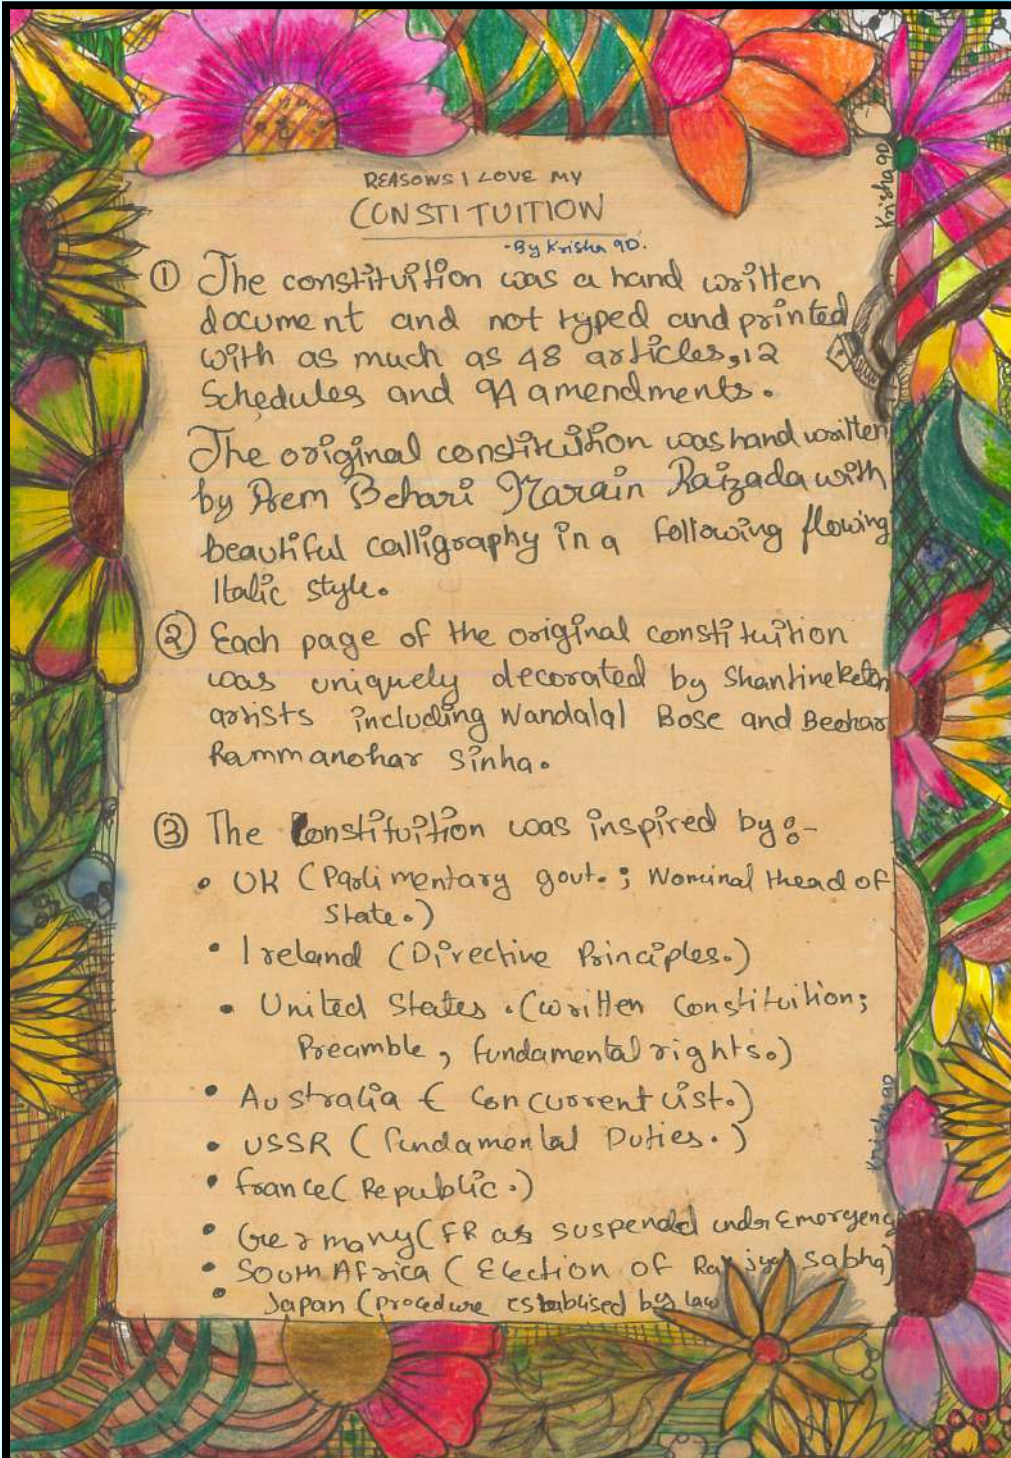 REASONS I LOVE MY
CONSTITUITION
- By Krisha 9D.
Krisha 9D
① The constituition was a hand written
document and not typed and printed
with as much as 48 articles, 12
Schedules and 94 amendments.
The original constituition was hand written
by Prem Behari Narain Raizada with
beautiful calligraphy in a following flowing
Italic style.
② Each page of the original constituition
was uniquely decorated by Shantineketan
artists including Nandalal Bose and Beohar
Rammanohar Sinha.
③ The Constituition was inspired by :-
• UK (Parlimentary govt. ; Nominal Head of
State.)
• Ireland (Directive Principles.)
• United States . (written Constituition;
Preamble , fundamental rights.)
• Australia ( Concurrent List.)
• USSR ( fundamental Duties. )
• france ( Republic .)
• Germany ( FR as suspended under Emergency
• South Africa ( Election of Rajya Sabha)
• Japan (procedure establised by law
Krisha 9D